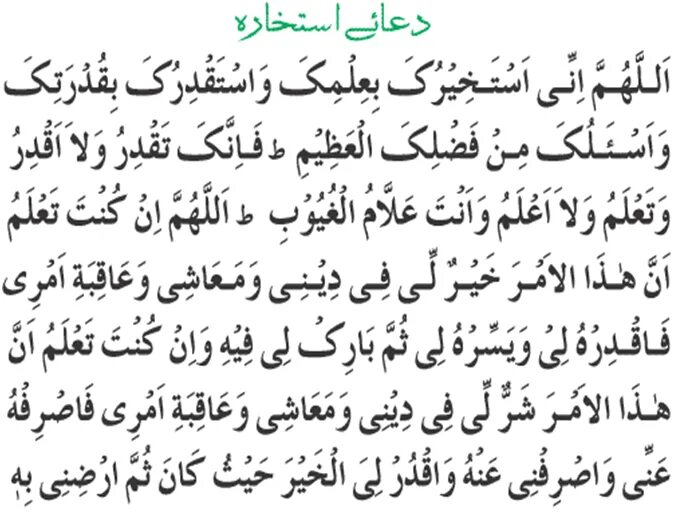 دعائے استخارہ
اَللّٰهُمَّ اِنِّی اَسْتَخِیْرُکَ بِعِلْمِکَ وَاسْتَقْدِرُکَ بِقُدْرَتِکَ
وَاَسْئَلُکَ مِنْ فَضْلِکَ الْعَظِیْمِ ط فَاِنَّکَ تَقْدِرُ وَلاَ اَقْدِرُ
وَتَعْلَمُ وَلاَ اَعْلَمُ وَاَنْتَ عَلَّامُ الْغُیُوْبِ ط اَللَّهُمَّ اِنْ کُنْتَ تَعْلَمُ
اَنَّ هٰذَا الاَمْرَ خَیْرٌ لِّی فِی دِیْنِی وَمَعَاشِی وَعَاقِبَةِ اَمْرِی
فَاقْدِرْهُ لِیْ وَیَسِّرْهُ لِی ثُمَّ بَارِکْ لِی فِیْهِ وَاِنْ کُنْتَ تَعْلَمُ اَنَّ
هٰذَا الاَمْرَ شَرٌّ لِّی فِی دِیْنِی وَمَعَاشِی وَعَاقِبَةِ اَمْرِی فَاصْرِفْهُ
عَنِّی وَاصْرِفْنِی عَنْهُ وَاقْدُرْ لِیَ الْخَیْرَ حَیْثُ کَانَ ثُمَّ ارْضِنِی بِهٖ